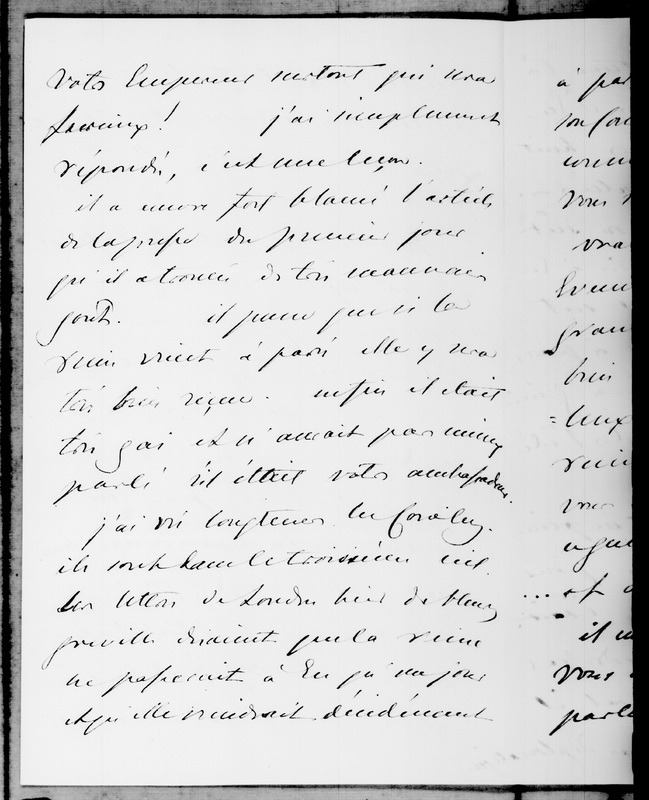 votre Empereur surtout qui sera
furieux ! j'ai simplement
répondu, c'est une leçon.
il a encore fort blamé l'article
de la presse du premier jour
qu'il a trouvé de très mauvais
gout. il pense que si la
reine vient à paris elle y sera
très bien reçue. enfin il était
très gai et n'aurait pas mieux
parlé s'il était votre ambassadeur.
j'ai vu longtems les Cowley.
ils sont dans le troisième ciel.
les lettres de Londres hier de Henry
greville disaient que la reine
ne passerait à Eu qu'un jour
et qu'elle viendrait décidément
à par
vous
vrai
gran
bien
reine
vous
et
il
vous
parle